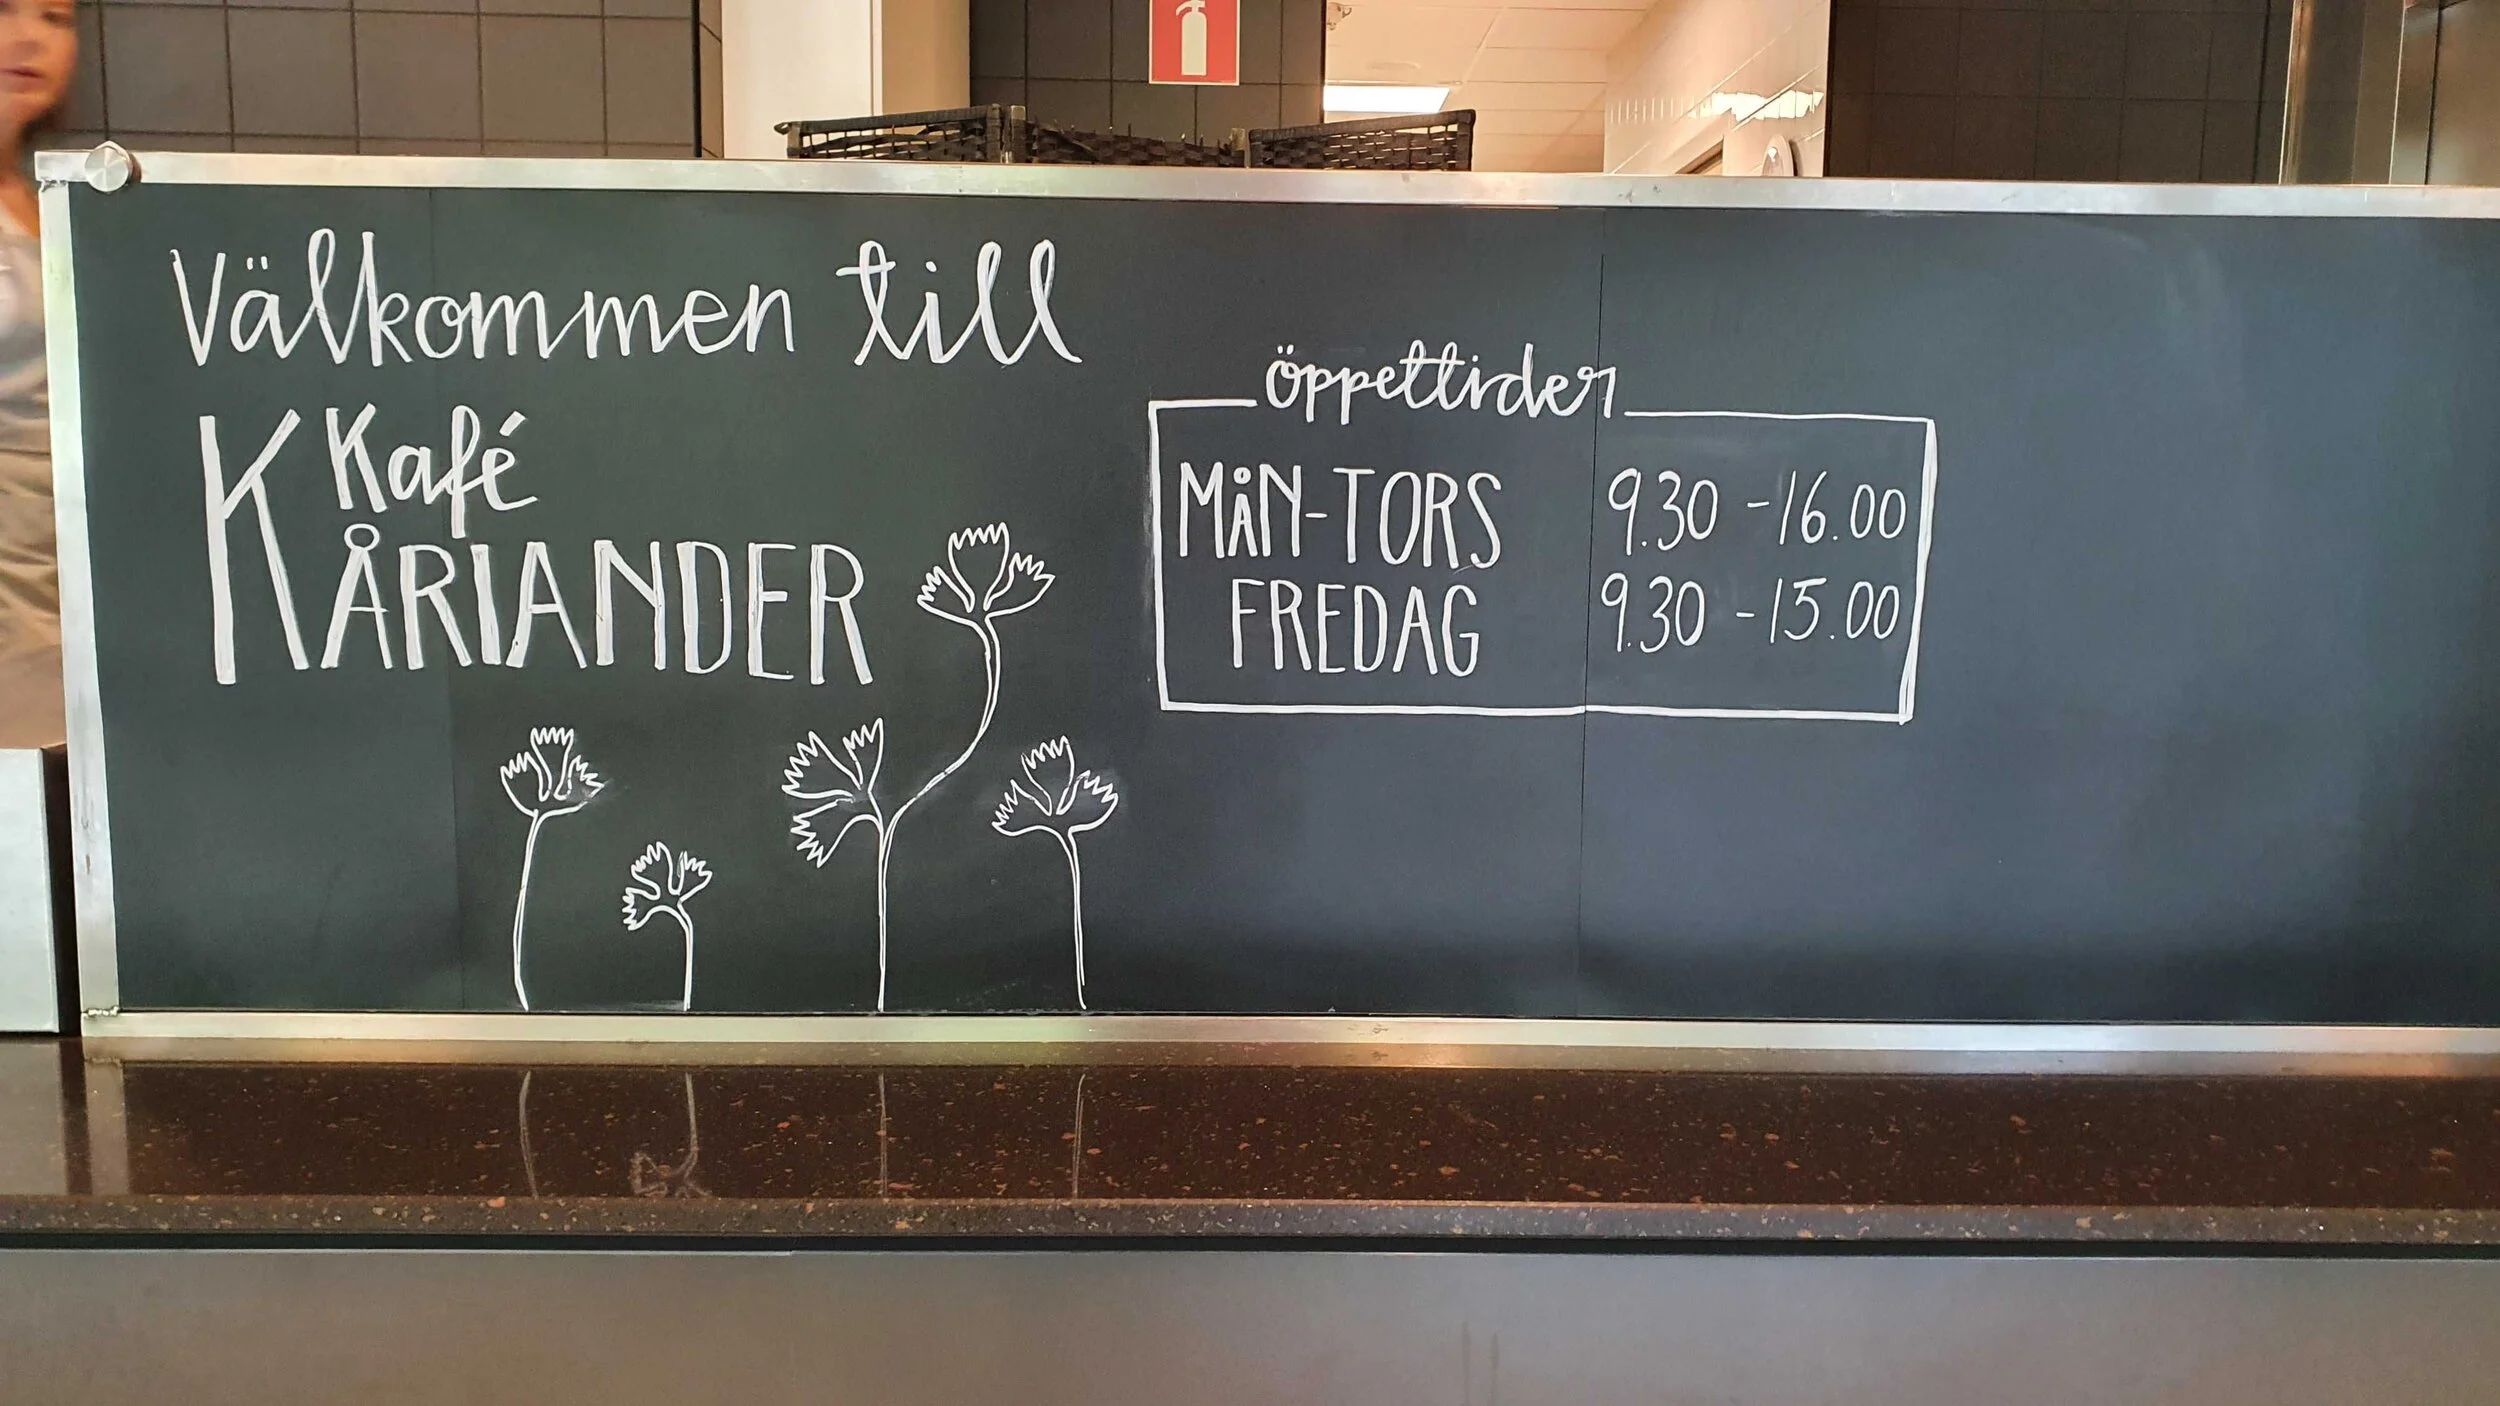 Välkommen till
Kafé
KÅRIANDER
öppettider
MÅN-TORS 9.30 - 16.00
FREDAG 9.30 - 15.00